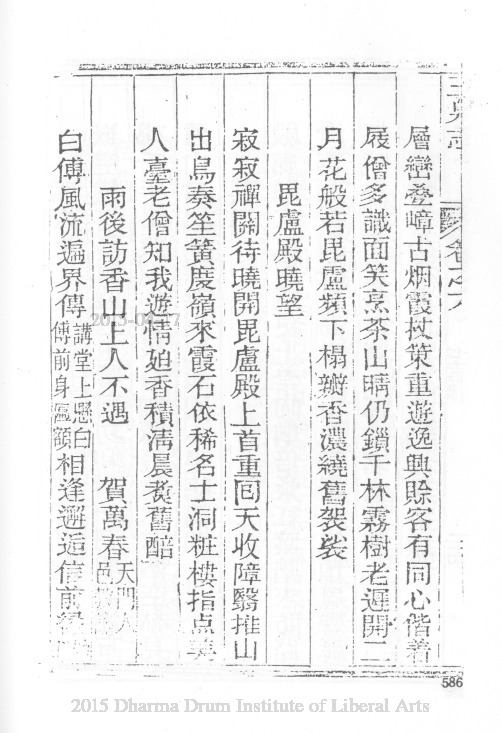 卷之六
層巒叠嶂古烟霞扙䇿重遊逸興賖客有同心偕着
屐僧多識面笑烹茶山晴仍鎖千林霧樹老遲開二
月花般若毘盧頻下榻瓣香濃繞舊袈裟
毘盧殿曉望
寂寂禪關待曉開毘盧殿上首重囘天收障翳推山
出鳥奏笙簧度嶺來霞石依稀名士洞粧樓指点美
人臺老僧知我遊情廹香積淸晨煑舊醅
雨後訪香山上人不遇 賀萬春天門人邑
白傅風流遍界傳講堂上懸白傅前身匾額相逢邂逅信前緣
586
2015 Dharma Drum Institute of Liberal Arts